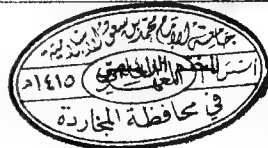 جامعة الإمام محمد بن سعود الإسلامية
أسس المعهد العلمي
١٤١٥هـ
في محافظة المجاردة